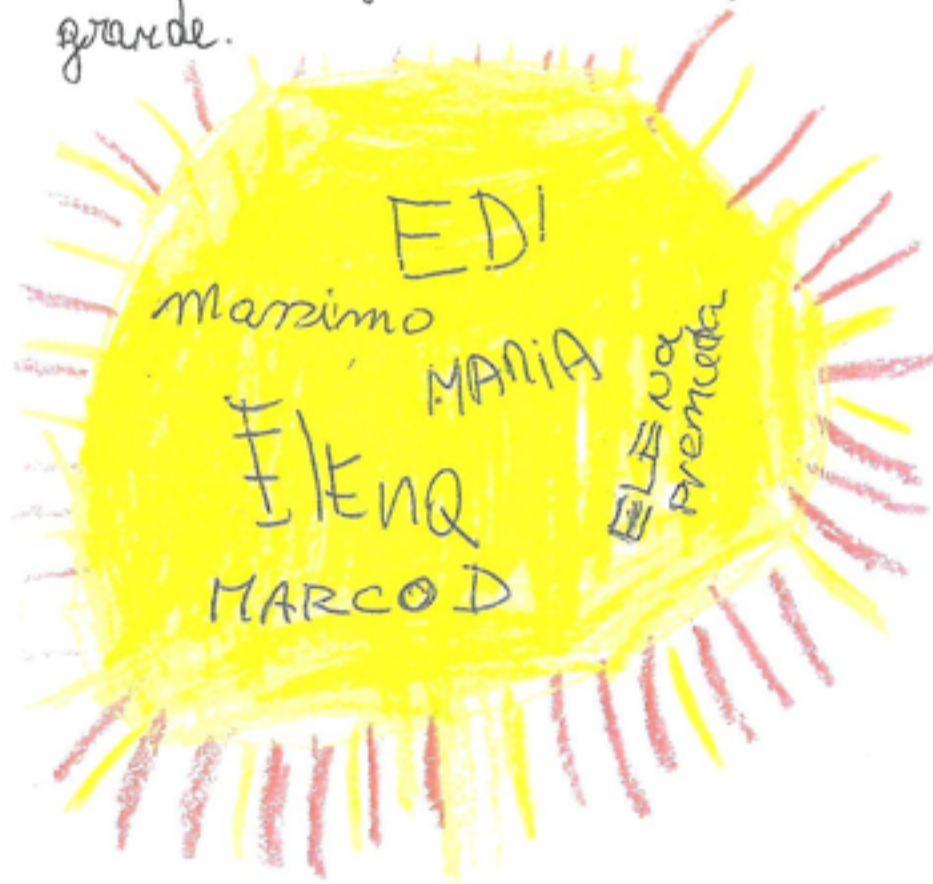 grande.
EDI
Massimo
MARIA
ElEnA
ELENA
MARCO D